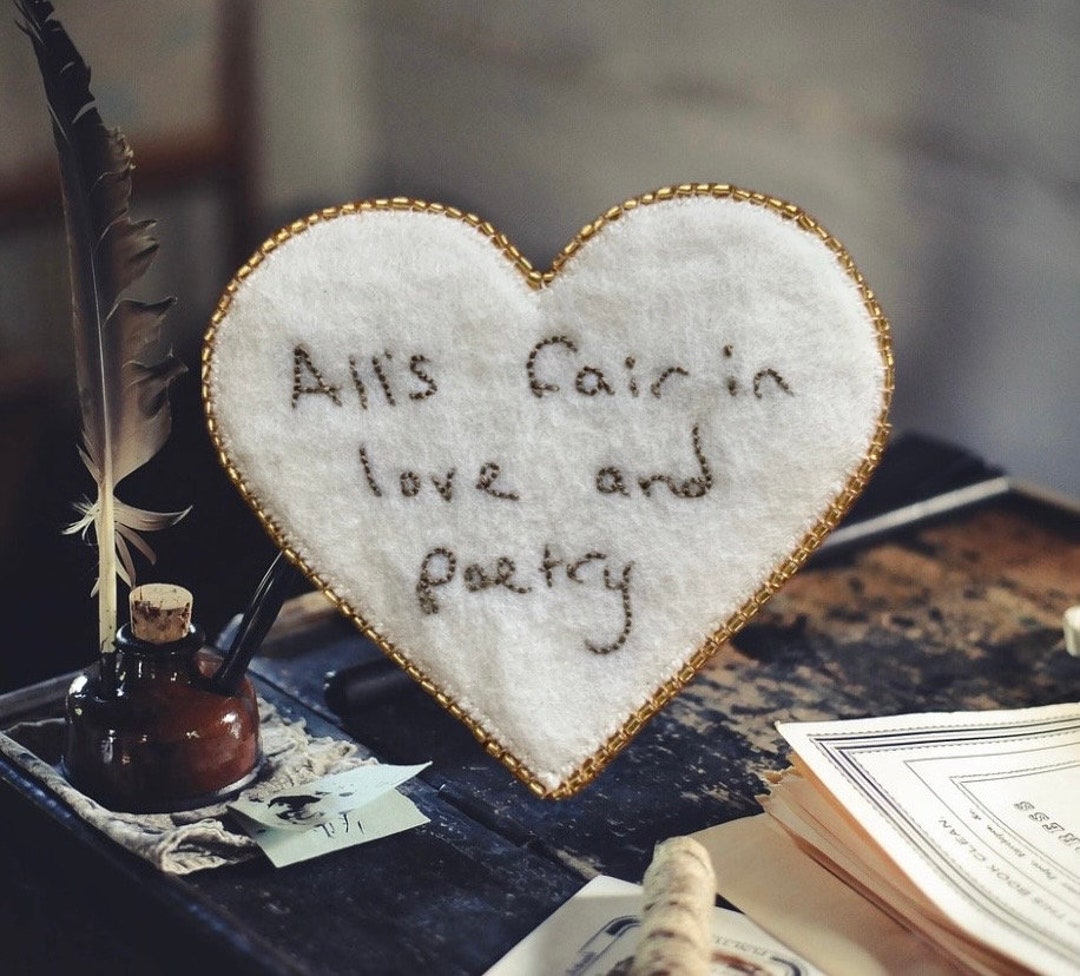 All's fair in
love and
poetry
THIS BOOK CLEAN